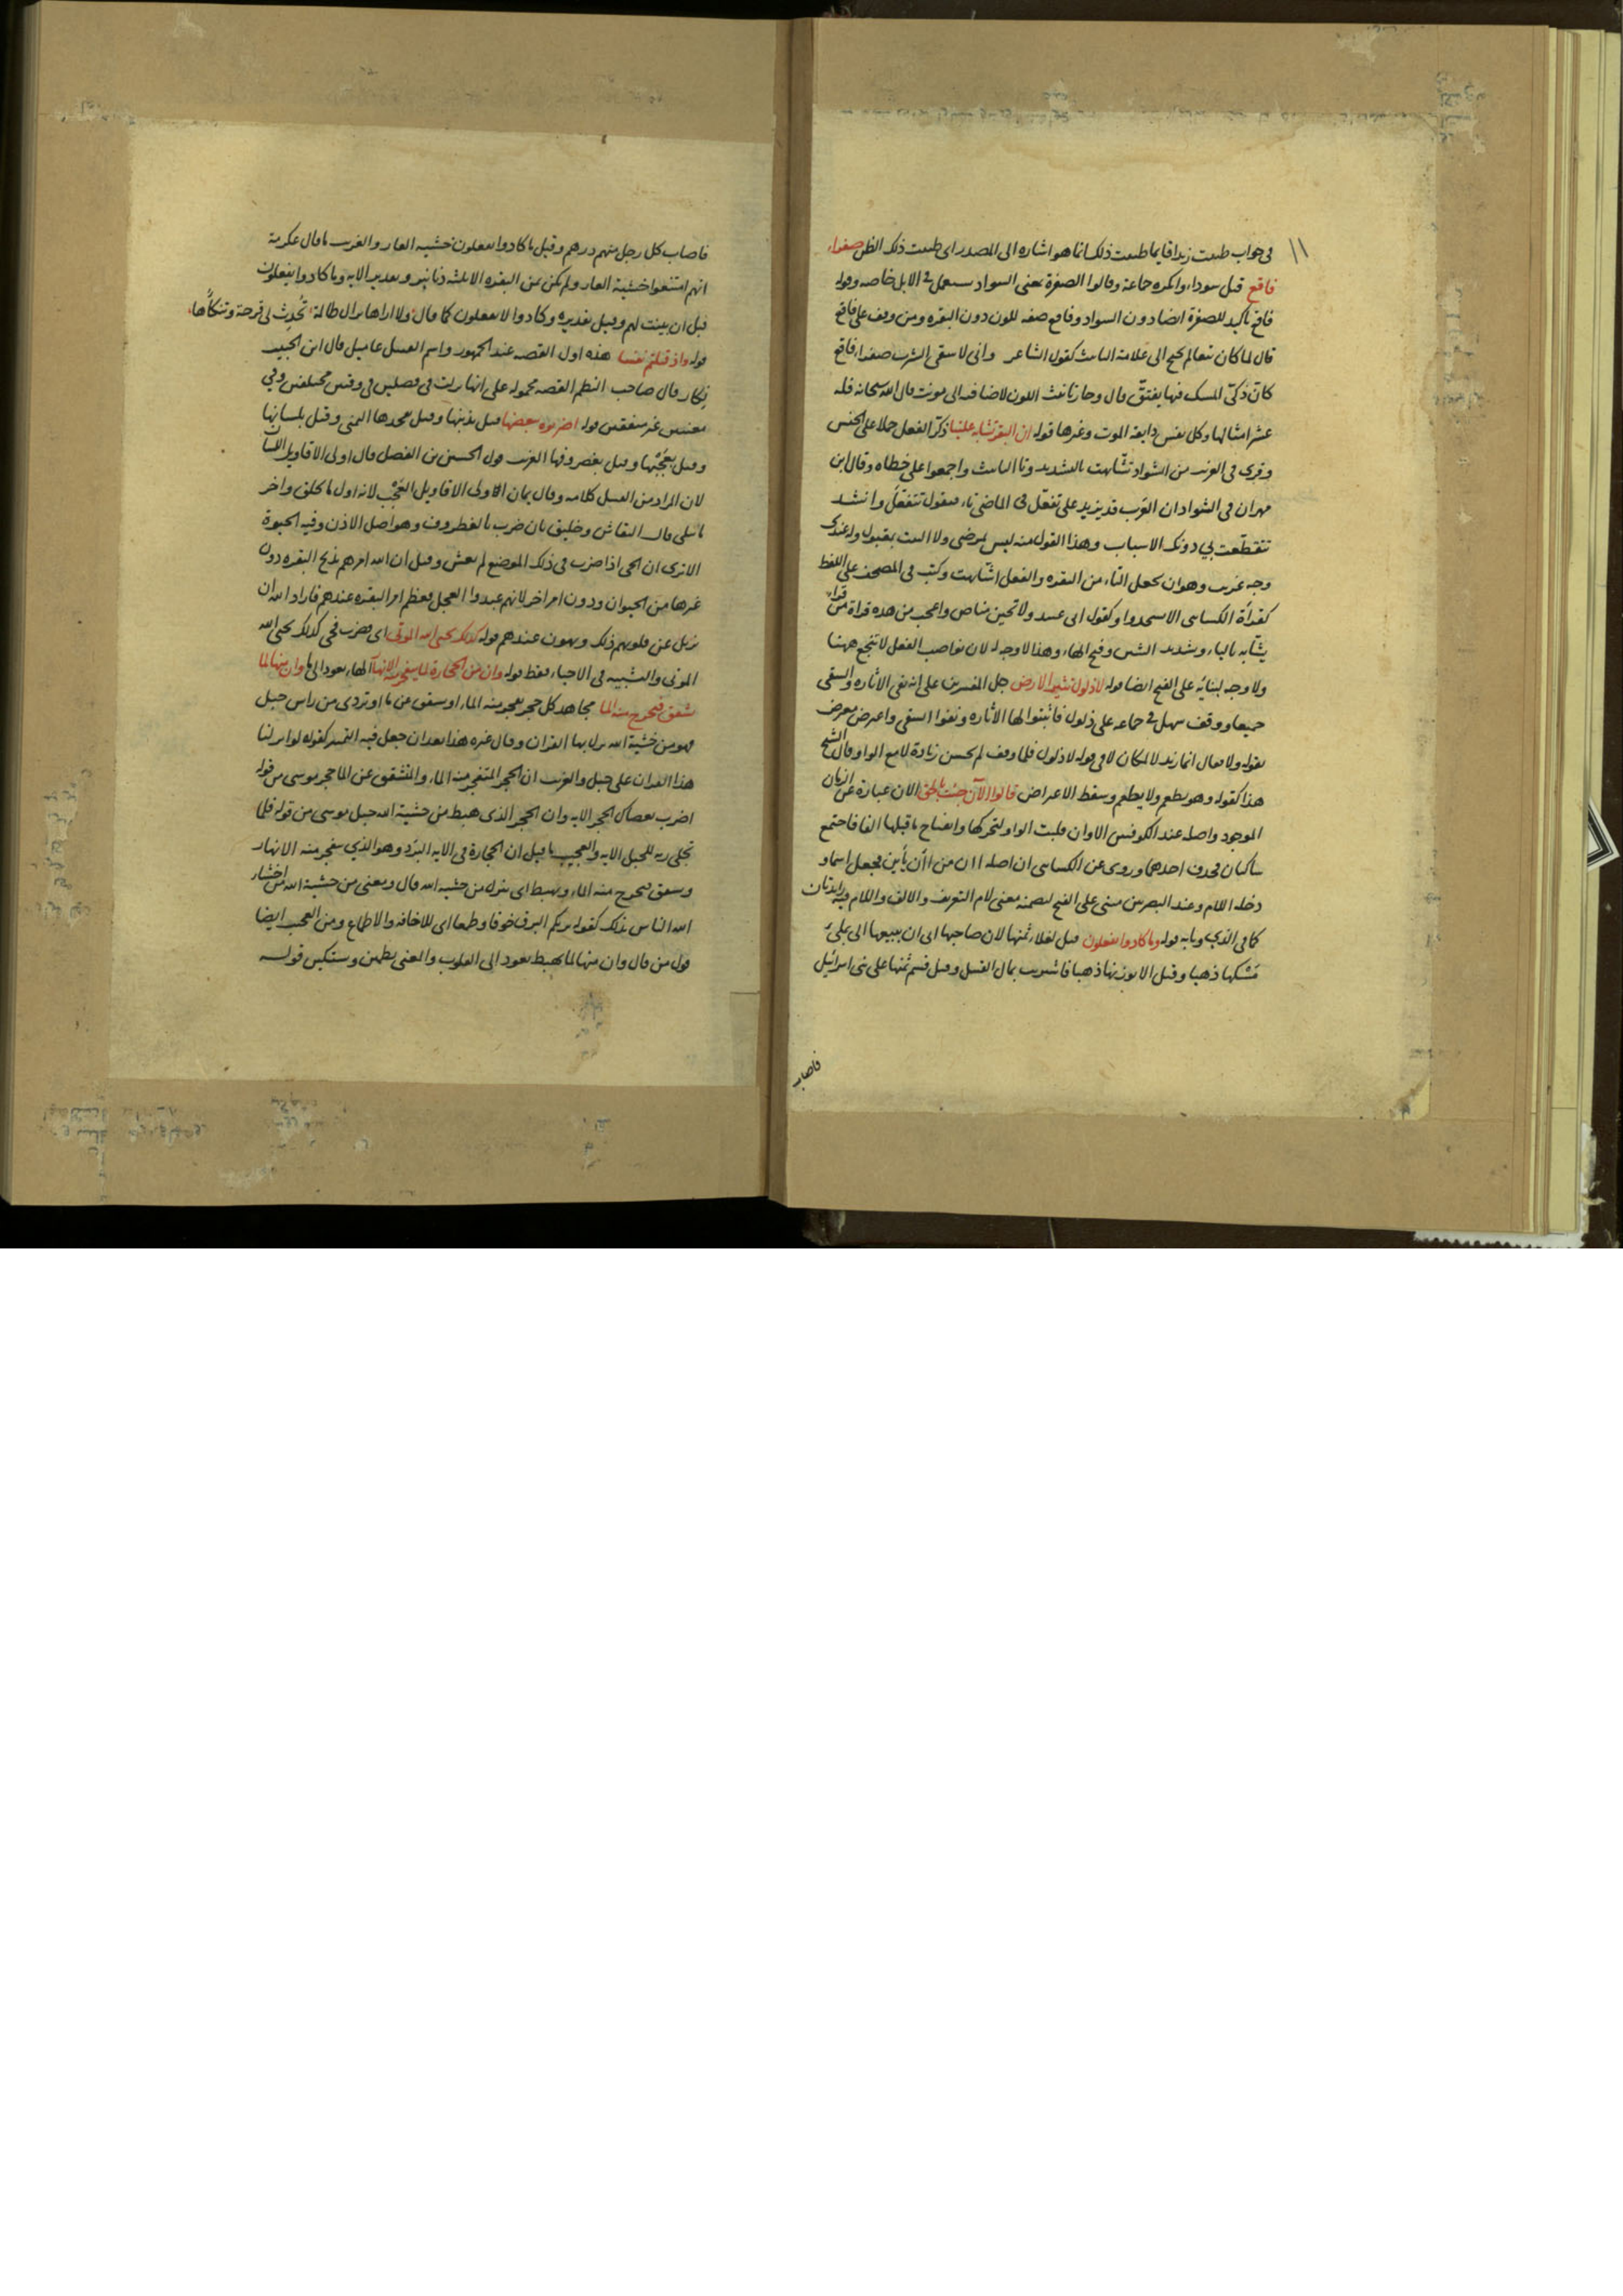 ١١
في جواب ظننت زيدا قايما ظننت ذلك انما هو اشاره الى المصدر اى ظننت ذلك الظن صفراء
فاقع قيل سوداء وانكره جماعة وقالوا الصفرة بمعنى السواد يستعمل في الابل خاصه وقوله
فاقع تاكيد للصفرة ايضا دون السواد وفاقع صفه للون دون البقره ومن وقف على فاقع
قال لما كان نعتا لم يحتج الى علامة التانيث كقول الشاعر وانى لاسقى الشرب صفراء فاقع
كان ذكىّ المسك فيها يفتق قال وجاز تانيث اللون لاضافته الى مونث قال الله سبحانه فله
عشر امثالها وكل نفس ذايقة الموت وغيرها قوله ان البقر تشابه علينا ذكّر الفعل حملا على الجنس
وقرى في الغريب من الشواذ تشّابهت بالتشديد وتا التانيث واجمعوا على خطاه وقال ابن
مهران في الشواذ ان العرب قد يزيد على تفعّل في الماضي تاء فيقول تتفعّل وانشد
تتقطّعت بي دونك الاسباب وهذا القول منه ليس بمرضى ولا البيت بمقبول وله عندى
وجه غريب وهو ان يجعل التاء من البقره والفعل اشّابهت وكتب في المصحف على اللفظ
كقراة الكساى الا يسجدوا وكقول ابى عبيد ولا تحين مناص واعجب من هذه قراة من قراء
يشّابه بالياء وتشديد الشين وفتح الهاء وهذا لا وجه له لان نواصب الفعل لا تنجع ههنا
ولا وجه لبنائه على الفتح ايضا قوله لا ذلول تثير الارض جل المفسرين على انه نفى الاثاره والسقى
جميعا ووقف سهل في جماعه على ذلول فاثبتوا لها الاثاره ونفوا السقى واعترض معترض
بقوله ولا يقال انما زيد لا لمكان لا في قوله لا ذلول فلما وقف لم يحسن زيادة لا مع الواو وقال الشيخ
هذا كقوله وهو يطعم ولا يطعم وسقط الاعراض قالوا الآن جئت بالحق الان عبارة عن الزمان
الموجود واصله عند الكوفيين الاوان قلبت الواو لتحركها وانفتاح ما قبلها الفا فاجتمع
ساكنان فحذف احدهما وروى عن الكساى ان اصله اان من اأن يأين فجعل اسما و
دخله اللام وعند البصريين مبنى على الفتح لتضمنه معنى لام التعريف والالف واللام فيه زايدتان
كما في الذي وبابه قوله وما كادوا يفعلون قيل لغلاء ثمنها لان صاحبها ابى ان يبيعها الى بملء
مَسْكها ذهبا وقيل الا بوزنها ذهبا فاشتريت بمال القتيل وقيل قسم ثمنها على بنى اسرائيل
فاصاب
فاصاب كل رجل منهم درهم وقيل ما كادوا يفعلون خشيه العار والغريب ما قال عكرمة
انهم امتنعوا خشية العار ولم يكن ثمن البقره الا ثلثه دنانير وتقدير الايه وما كادوا يفعلون
قبل ان بينت لهم وقيل تقديره وكادوا لا يفعلون كما قال ولا اراها تزال ظالمة تُحدِث لى قرحة وتنكأُها
قوله واذ قتلتم نفسا هذه اول القصه عند الجمهور واسم القتيل عاميل قال ابن الحبيب
نكار قال صاحب النظم القصه محموله على انها نزلت في فصلين في وقتين مختلفين وفي
معنيين غير متفقين قوله اضربوه ببعضها قيل بذنبها وقيل بفخذها اليمنى وقيل بلسانها
وقيل بعَجْبها وقيل بغضروفها الغريب قول الحسين بن الفضل قال اولى الاقاويل اللسان
لان المراد من القتيل كلامه وقال يمان الاولى الاقاويل العَجْب لانه اول ما يخلق واخر
ما يبلى قال النقاش وخليق بان ضرب بالغضروف وهو اصل الاذن وفيه الحيوة
الا ترى ان الحى اذا ضرب في ذلك الموضع لم يعش وقيل ان الله امرهم بذبح البقره دون
غيرها من الحيوان ودون امر اخر لانهم عبدوا العجل فعظم امر البقره عندهم فاراد الله ان
يزيل عن قلوبهم ذلك ويهون عندهم قوله كذلك يحى الله الموتى اى فضرب فحى كذلك يحى الله
الموتى والتشبيه في الاحياء فقط قوله وان من الحجارة لما يتفجر منه الانهار الهاء يعود الى ما وان منها لما
يشقق فيخرج منه الما مجاهد كل حجر تفجر منه الماء او تشقق عن ما او تردى من راس جبل
فهو من خشية الله نزل بها القران وقال غيره هذا بعد ان جعل فيه التميز كقوله لو انزلنا
هذا القران على جبل والغريب ان الحجر المتفجر منه الماء والمتشقق عن الما حجر موسى من قوله
اضرب بعصاك الحجر الايه وان الحجر الذى هبط من خشية الله جبل موسى من قوله فلما
تجلى ربه للجبل الايه والعجيب ما قيل ان الحجارة في الايه البرَد وهو الذي يتفجر منه الانهار
وتشقق فيخرج منه الماء ويهبط اى ينزل من خشيه الله قال ومعنى من خشية الله من اخشاء
الله الناس بذلك كقوله يريكم البرق خوفا وطمعا اى للاخافه والاطماع ومن العجب ايضا
قول من قال وان منها لما يهبط يعود الى القلوب والمعنى يطمئن وستكين قوله